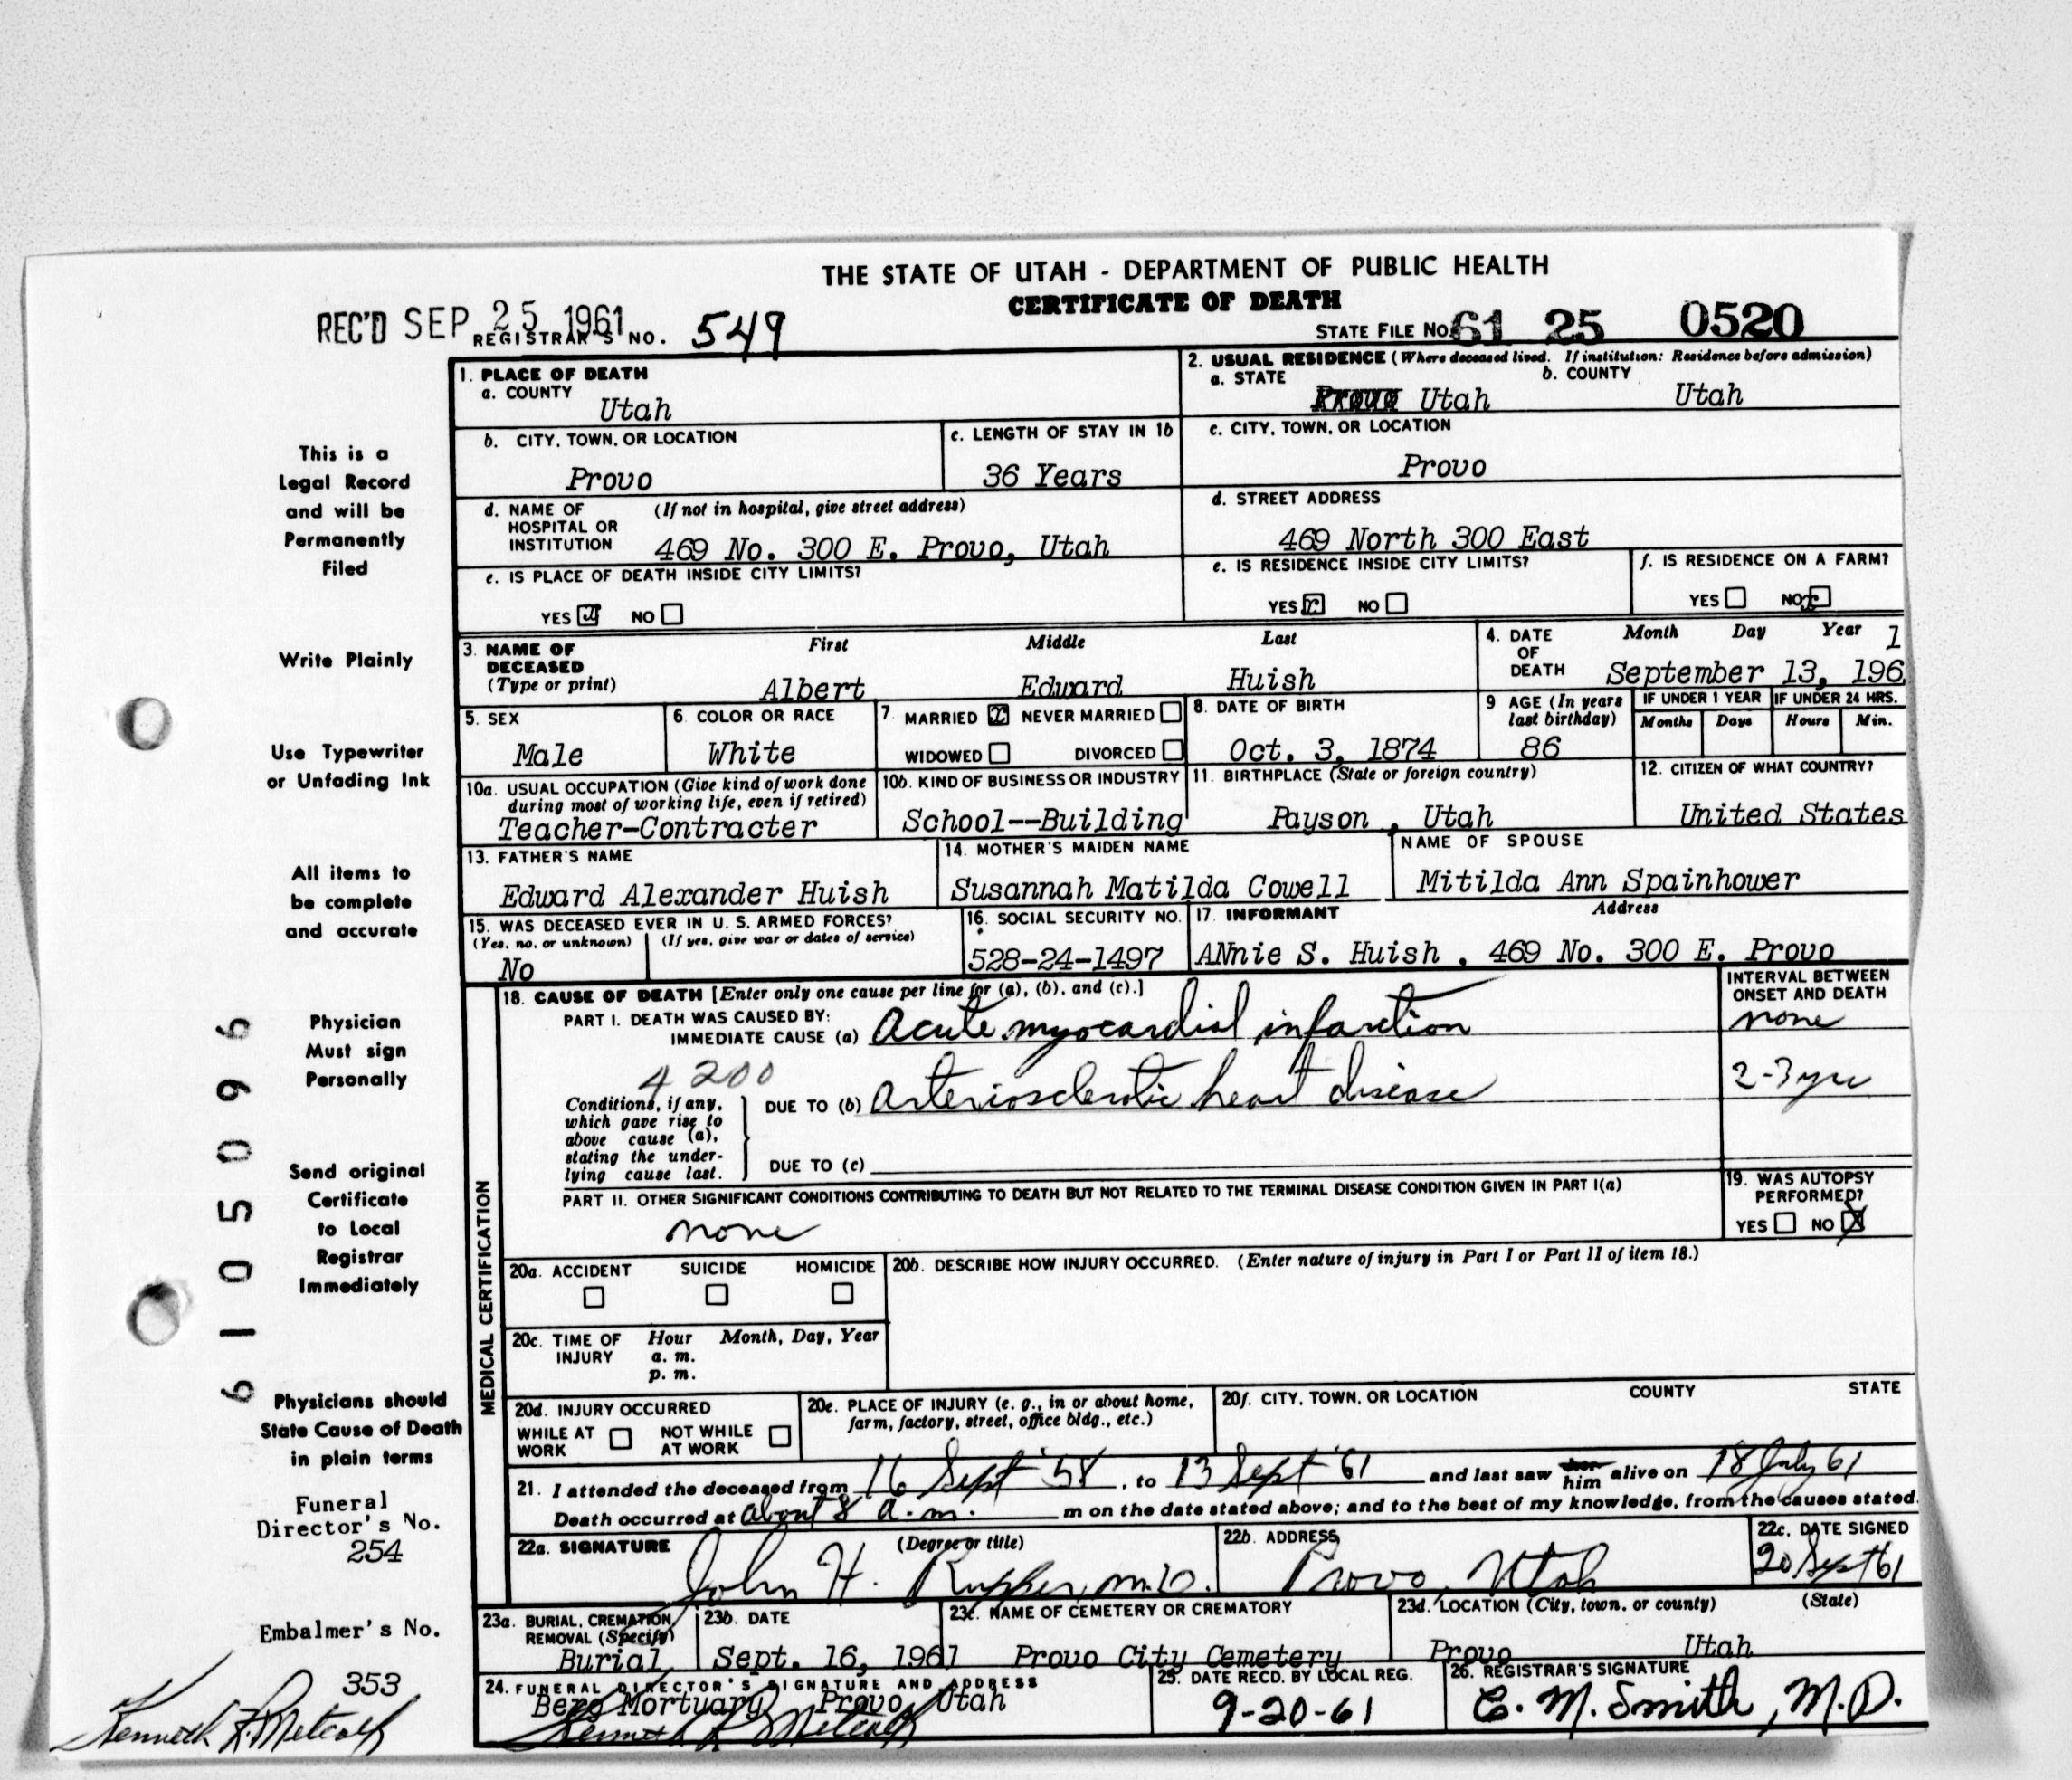 THE STATE OF UTAH - DEPARTMENT OF PUBLIC HEALTH
CERTIFICATE OF DEATH
REC'D SEP 25 1961 REGISTRAR'S NO. 549
STATE FILE NO. 61 25 0520
1. PLACE OF DEATH
a. COUNTY
Utah
2. USUAL RESIDENCE (Where deceased lived. If institution: Residence before admission)
a. STATE b. COUNTY
Provo Utah Utah
b. CITY, TOWN, OR LOCATION
Provo
c. LENGTH OF STAY IN 1b
36 Years
c. CITY, TOWN, OR LOCATION
Provo
d. NAME OF (If not in hospital, give street address)
HOSPITAL OR
INSTITUTION 469 No. 300 E. Provo, Utah
d. STREET ADDRESS
469 North 300 East
e. IS PLACE OF DEATH INSIDE CITY LIMITS?
YES x NO
e. IS RESIDENCE INSIDE CITY LIMITS?
YES x NO
f. IS RESIDENCE ON A FARM?
YES NO x
3. NAME OF First Middle Last
DECEASED
(Type or print) Albert Edward Huish
4. DATE Month Day Year 1
OF
DEATH September 13, 196
5. SEX
Male
6. COLOR OR RACE
White
7. MARRIED x NEVER MARRIED
WIDOWED DIVORCED
8. DATE OF BIRTH
Oct. 3, 1874
9 AGE (In years
last birthday)
86
IF UNDER 1 YEAR IF UNDER 24 HRS.
Months Days Hours Min.
10a. USUAL OCCUPATION (Give kind of work done
during most of working life, even if retired)
Teacher-Contracter
10b. KIND OF BUSINESS OR INDUSTRY
School--Building
11. BIRTHPLACE (State or foreign country)
Payson , Utah
12. CITIZEN OF WHAT COUNTRY?
United States
13. FATHER'S NAME
Edward Alexander Huish
14. MOTHER'S MAIDEN NAME
Susannah Matilda Cowell
NAME OF SPOUSE
Mitilda Ann Spainhower
15. WAS DECEASED EVER IN U. S. ARMED FORCES?
(Yes, no, or unknown) (If yes, give war or dates of service)
No
16. SOCIAL SECURITY NO.
528-24-1497
17. INFORMANT Address
ANnie S. Huish , 469 No. 300 E. Provo
18. CAUSE OF DEATH [Enter only one cause per line for (a), (b), and (c).]
INTERVAL BETWEEN
ONSET AND DEATH
PART I. DEATH WAS CAUSED BY:
IMMEDIATE CAUSE (a) acute myocardial infarction none
4200
Conditions, if any,
which gave rise to
above cause (a),
stating the under-
lying cause last.
DUE TO (b) arteriosclerotic heart disease 2-3 yrs
DUE TO (c)
PART II. OTHER SIGNIFICANT CONDITIONS CONTRIBUTING TO DEATH BUT NOT RELATED TO THE TERMINAL DISEASE CONDITION GIVEN IN PART I(a)
none
19. WAS AUTOPSY
PERFORMED?
YES NO X
MEDICAL CERTIFICATION
20a. ACCIDENT SUICIDE HOMICIDE
20b. DESCRIBE HOW INJURY OCCURRED. (Enter nature of injury in Part I or Part II of item 18.)
20c. TIME OF Hour Month, Day, Year
INJURY a. m.
p. m.
20d. INJURY OCCURRED
WHILE AT NOT WHILE
WORK AT WORK
20e. PLACE OF INJURY (e. g., in or about home,
farm, factory, street, office bldg., etc.)
20f. CITY, TOWN, OR LOCATION COUNTY STATE
21. I attended the deceased from 16 Sept '58 , to 13 Sept '61 and last saw her him alive on 18 July 61
Death occurred at about 8 a.m. m on the date stated above; and to the best of my knowledge, from the causes stated.
22a. SIGNATURE (Degree or title)
John H. M.D.
22b. ADDRESS
Provo, Utah
22c. DATE SIGNED
20 Sept '61
23a. BURIAL, CREMATION,
REMOVAL (Specify)
Burial
23b. DATE
Sept. 16, 1961
23c. NAME OF CEMETERY OR CREMATORY
Provo City Cemetery
23d. LOCATION (City, town, or county) (State)
Provo Utah
24. FUNERAL DIRECTOR'S SIGNATURE AND ADDRESS
Berg Mortuary Provo, Utah
Kenneth R Metcalf
25. DATE RECD. BY LOCAL REG.
9-20-61
26. REGISTRAR'S SIGNATURE
C. M. Smith, M.D.
This is a
Legal Record
and will be
Permanently
Filed
Write Plainly
Use Typewriter
or Unfading Ink
All items to
be complete
and accurate
Physician
Must sign
Personally
Send original
Certificate
to Local
Registrar
Immediately
Physicians should
State Cause of Death
in plain terms
Funeral
Director's No.
254
Embalmer's No.
353
Kenneth R Metcalf
6105096